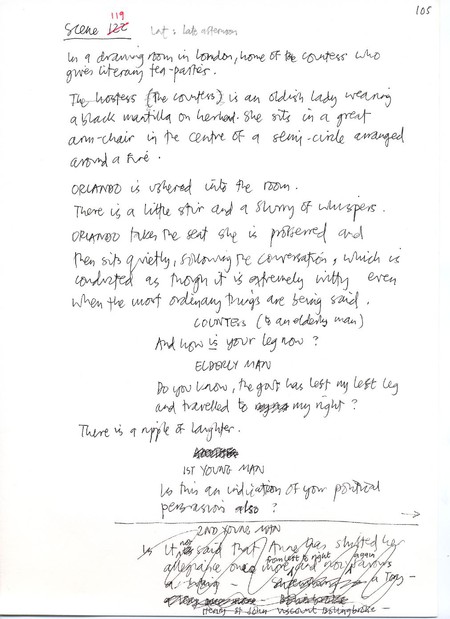 105
119
Scene 122 Int : late afternoon
In a drawing room in London, home of the countess who
gives literary tea-parties.
The hostess (The countess) is an oldish lady wearing
a black mantilla on her head. She sits in a great
arm-chair in the centre of a semi-circle arranged
around a fire.
ORLANDO is ushered into the room.
There is a little stir and a slurry of whispers.
ORLANDO takes the seat she is proffered and
then sits quietly, following the conversation, which is
conducted as though it is extremely witty even
when the most ordinary things are being said.
COUNTESS (to an elderly man)
And how is your leg now ?
ELDERLY MAN
Do you know, the gout has left my left leg
and travelled to my right ?
There is a ripple of laughter.
1ST YOUNG MAN
Is this an indication of your political
persuasion also ?
2ND YOUNG MAN
Is it not said that Anne has shifted her
from left to right again
allegiance once more and now favours
a Tory -
Henry St John Viscount Bolingbroke -